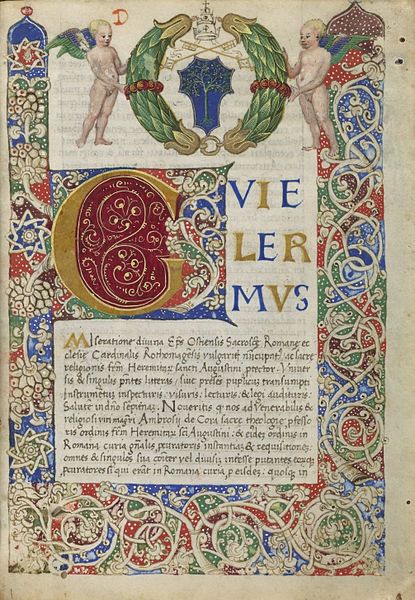 D
GVIE
LER
MVS
Miseratione diuina Eps Ostiensis Sacrosce Romane ec
clesie Cardinalis Rothomagensis vulgariter nuncupatus ac sacre
religionis frm Heremitar sancti Augustini ptector. Vniuer
sis & singulis pntes litteras, siue presens publicum transumpti
Instrumentum inspecturis, visuris, lecturis, & legi audituris.
Salute in dno sepiternam. Noueritis q nos ad venerabilis &
religiosi viri magri Ambrosij de Cora sacre theologie pfesso
ris ordinis frm Heremitar sci Augustini: & eiusdem ordinis in
Romana curia gnalis pcuratoris instantiam & requisitionem:
omnes & singulos sua coiter vel diuisim interesse putantes eorumq
pcuratores si qui erant in Romana curia p eisdem: quosdam in